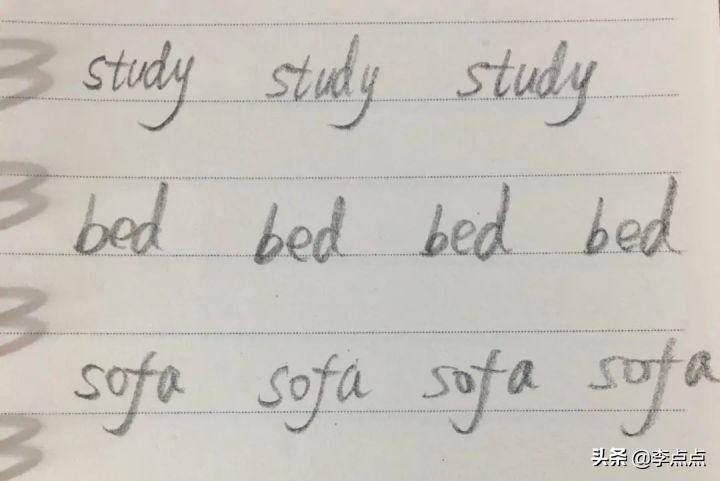 study study study
bed bed bed bed
sofa sofa sofa sofa
头条 @李点点